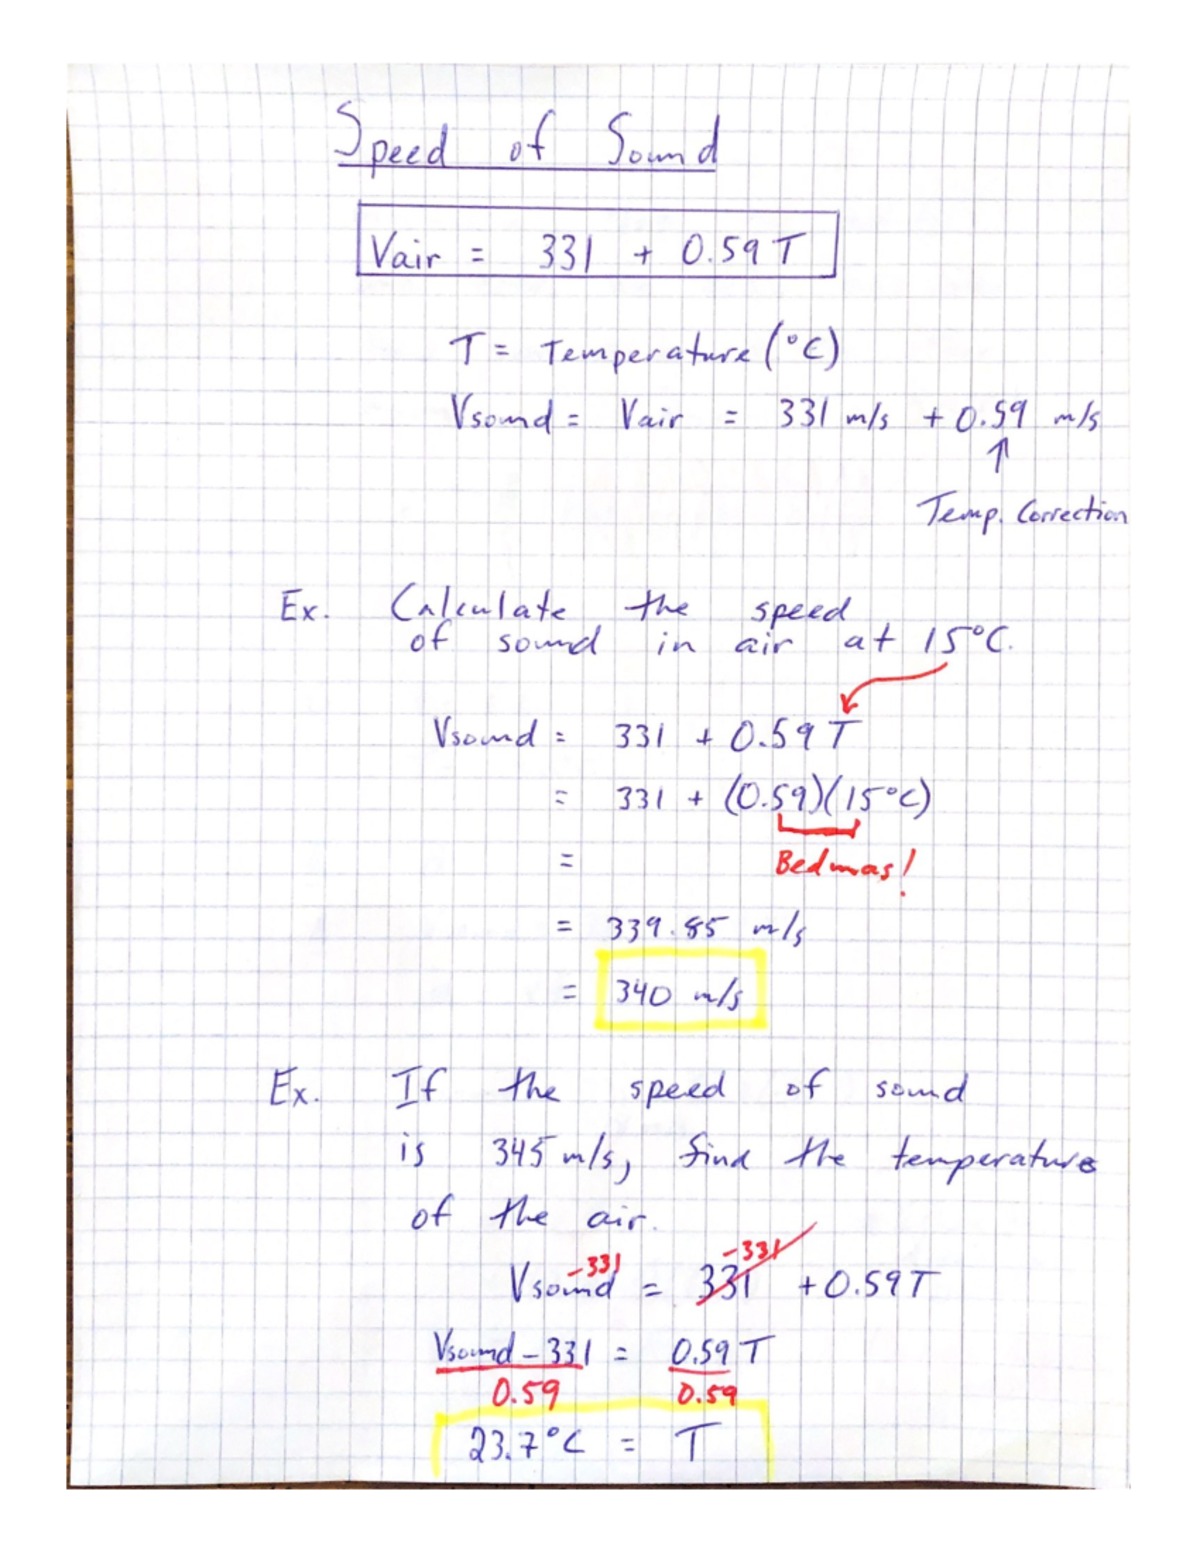 Speed of Sound
Vair = 331 + 0.59 T
T = Temperature (°C)
Vsound = Vair = 331 m/s + 0.59 m/s
↑
Temp. Correction
Ex. Calculate the speed
of sound in air at 15°C.
Vsound = 331 + 0.59 T
= 331 + (0.59)(15°C)
= Bedmas!
= 339.85 m/s
= 340 m/s
Ex. If the speed of sound
is 345 m/s, find the temperature
of the air.
-331 -331
Vsound = 331 + 0.59T
Vsound - 331 = 0.59 T
0.59 0.59
23.7°C = T